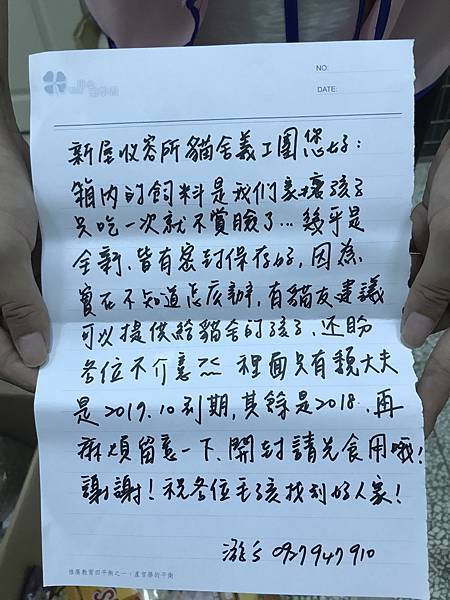 NO:
DATE:
新屋收容所貓舍義工團您好:
箱內的飼料是我们家壞孩子
只吃一次就不賞臉了...幾乎是
全新.皆有密封保存好,因為
實在不知道怎麽辦,有貓友建議
可以提供給貓舍的孩子,还盼
各位不介意>"< 裡面只有親大夫
是2019.10到期,其餘是2018.再
麻煩留意一下.開封請先食用哦!
謝謝!祝各位毛孩找到好人家!
0937947910
推廣教育四平衡之一:產官學的平衡